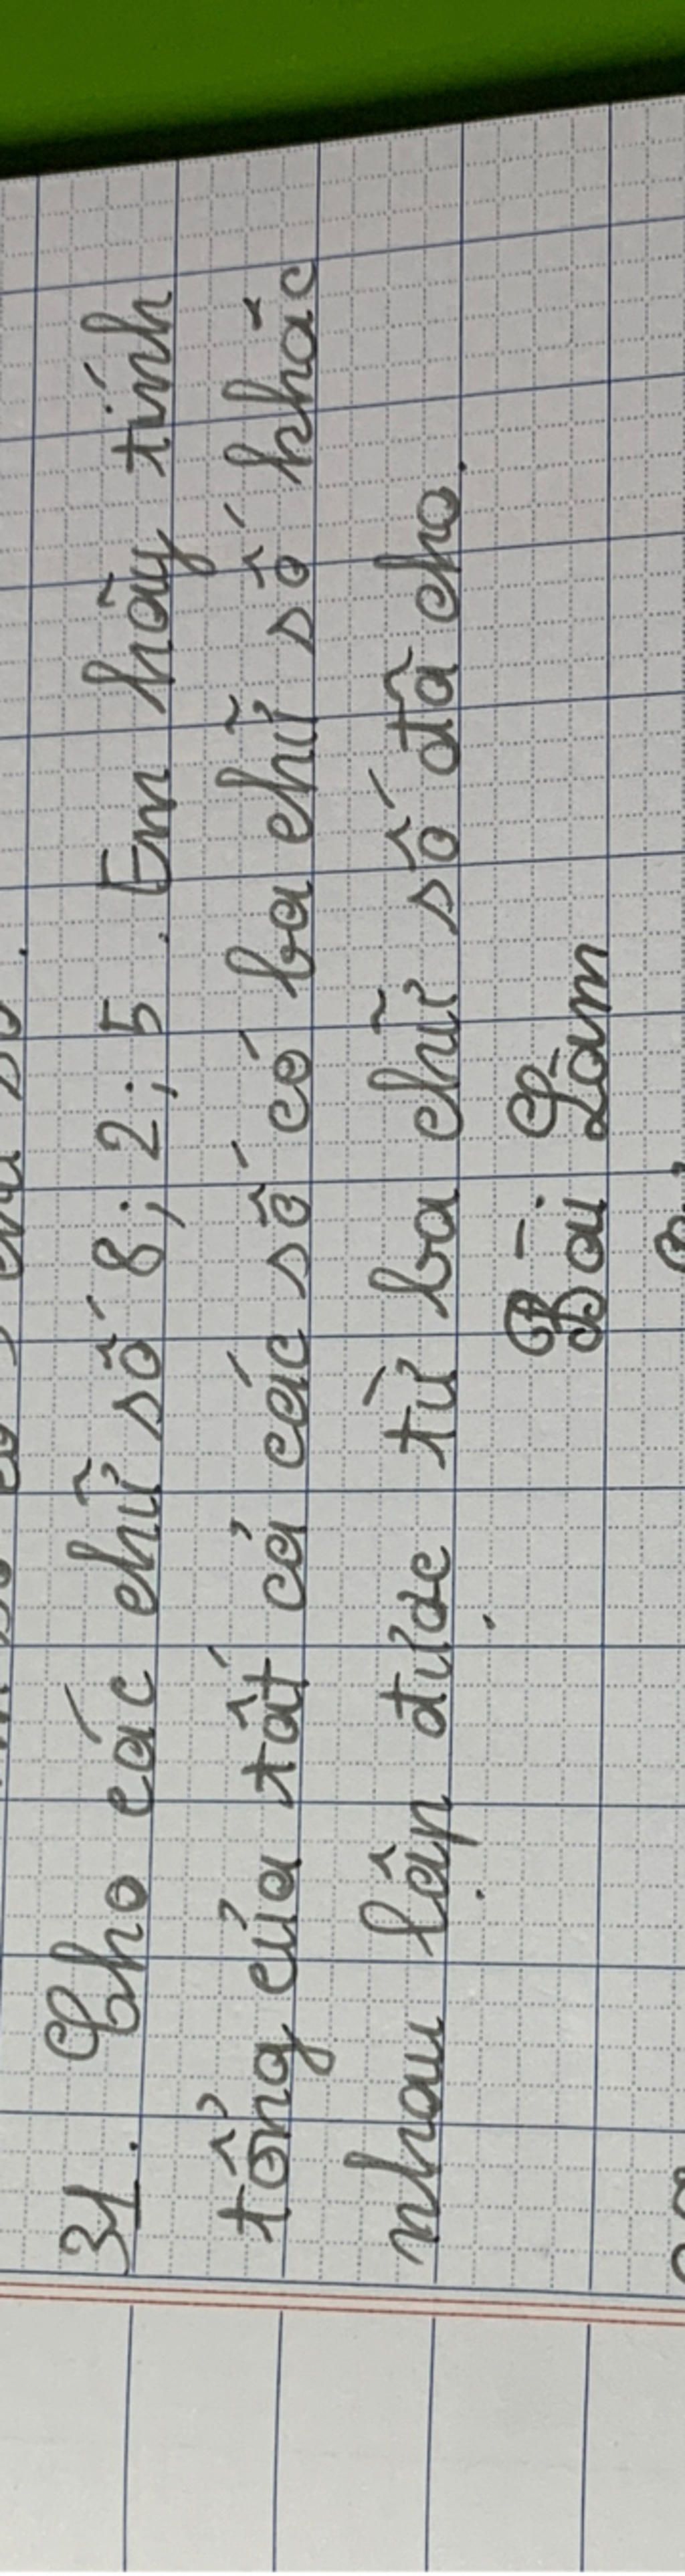 31. Cho các chữ số 8; 2; 5. Em hãy tính
tổng của tất cả các số có ba chữ số khác
nhau lập được từ ba chữ số đã cho.
Bài Làm